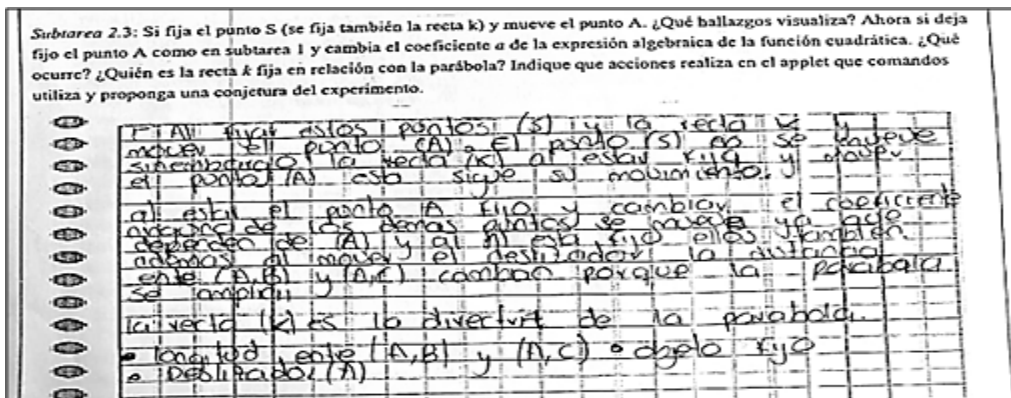 Subtarea 2.3: Si fija el punto S (se fija también la recta k) y mueve el punto A. ¿Qué hallazgos visualiza? Ahora si deja
fijo el punto A como en subtarea 1 y cambia el coeficiente a de la expresión algebraica de la función cuadrática. ¿Qué
ocurre? ¿Quién es la recta k fija en relación con la parábola? Indique que acciones realiza en el applet que comandos
utiliza y proponga una conjetura del experimento.
Al fijar estos puntos (S) y la recta k y
mover el punto (A). El punto (S) no se mueve
sinembargo la recta (K) al estar fija y mover
el punto (A) esta sigue su movimiento. y
al estar el punto A fijo y cambiar el coeficiente
ninguno de los demas puntos se mueve ya que
dependen de (A) y al A esta fijo ellos tambien
ademas al mover el deslizador la distancia
ente (A,B) y (A,C) cambian porque la parabola
se amplia
la recta (k) es la directriz de la parabola.
• longitud ente (A,B) y (A,C) • objeto fijo
• Deslizador (A)